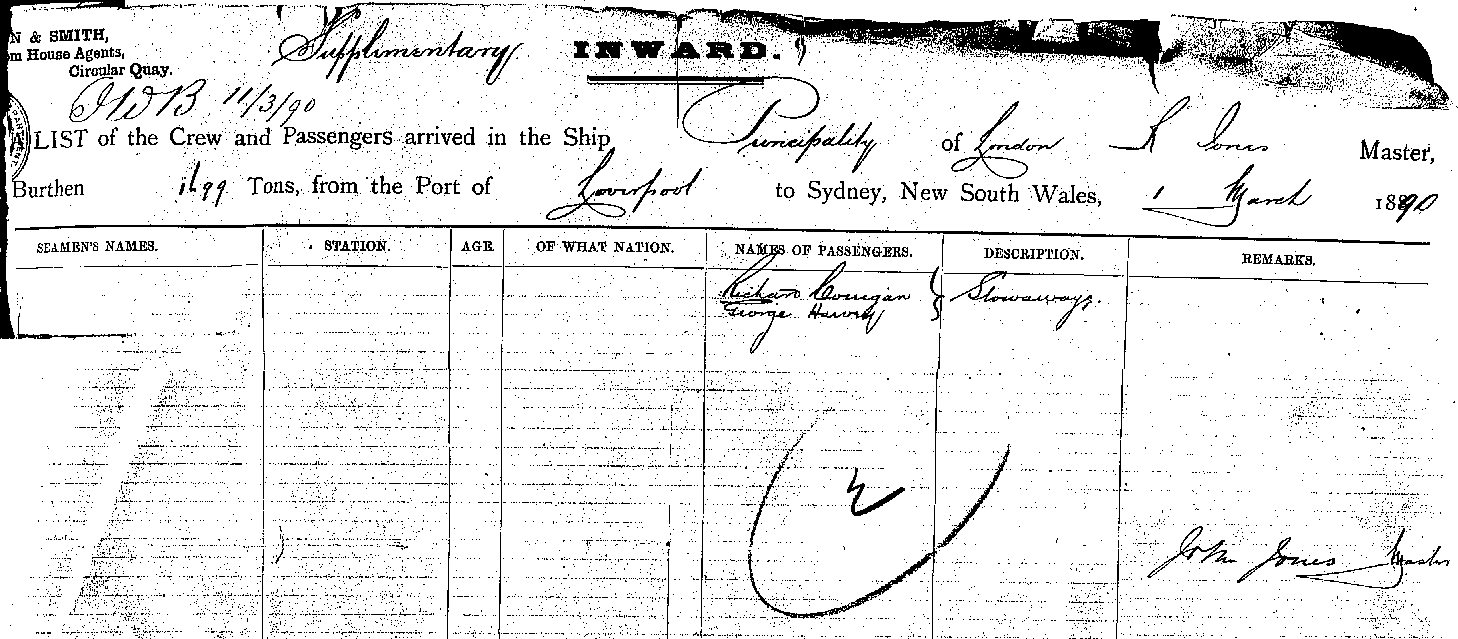 N & SMITH,
om House Agents,
Circular Quay.
Supplimentary INWARD.
JWB 11/3/90
A LIST of the Crew and Passengers arrived in the Ship Principality of London R Jones Master,
Burthen 1699 Tons, from the Port of Liverpool to Sydney, New South Wales, 1 March 1890
SEAMEN'S NAMES. STATION. AGE OF WHAT NATION. NAMES OF PASSENGERS. DESCRIPTION. REMARKS.
Richard Corrigan } Stowaways.
George Harvey
2
John Jones Master